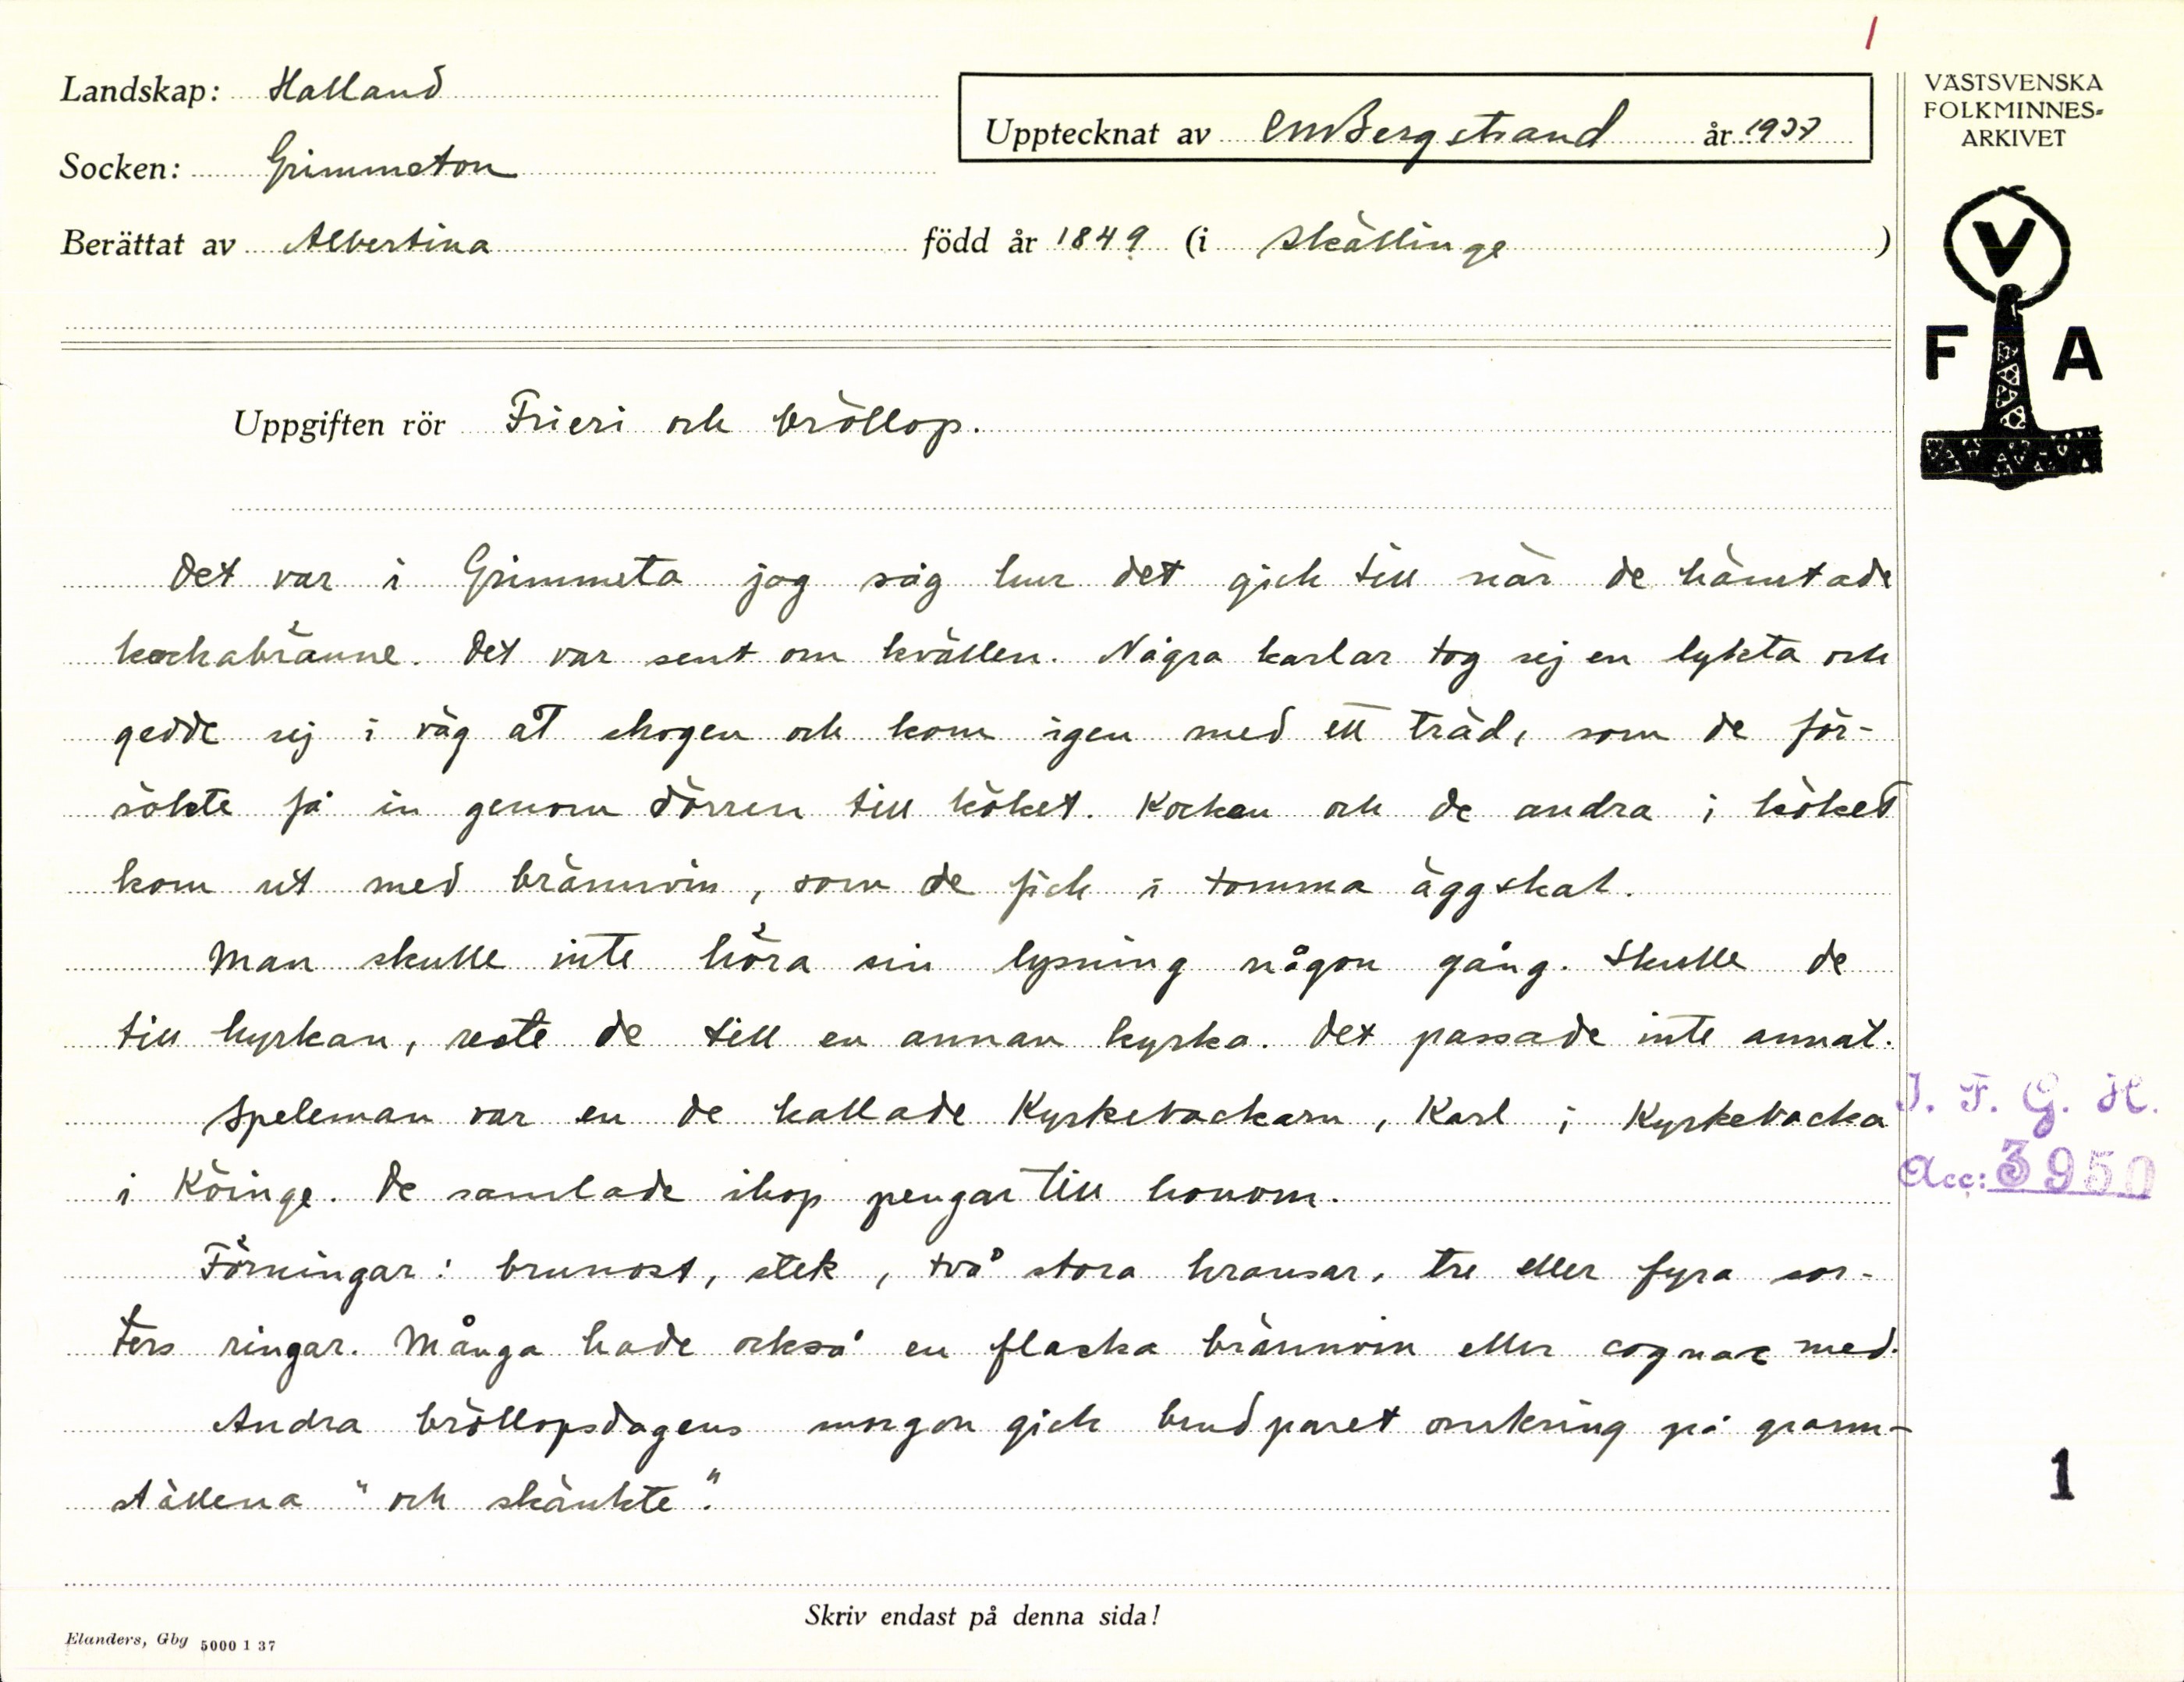 1
Landskap: Halland
Upptecknat av CMBergstrand år 1937
Socken: Grimmeton
Berättat av Albertina född år 1849 (i Skällinge)
VÄSTSVENSKA
FOLKMINNES-
ARKIVET
V
F A
Uppgiften rör Frieri och bröllop.
Det var i Grimmeta jag såg hur det gick till när de hämtade
kockabränne. Det var sent om kvällen. Några karlar tog sej en lykta och
gedde sej i väg åt skogen och kom igen med ett träd, som de för-
sökte få in genom dörren till köket. Kocken och de andra i köket
kom ut med brännvin, som de fick i tomma äggskal.
Man skulle inte höra sin lysning någon gång. Skulle de
till kyrkan, reste de till en annan kyrka. Det passade inte annat.
Speleman var en de kallade Kyrkebackarn, Karl i Kyrkebacka
i Köinge. De samlade ihop pengar till honom.
Förningar: brunost, stek, två stora kransar, tre eller fyra sor-
ters ringar. Många hade också en flaska brännvin eller cognac med.
Andra bröllopsdagens morgon gick brudparet omkring på grann-
ställena "och skänkte".
I. F. G. H.
Acc: 3950
1
Skriv endast på denna sida!
Elanders, Gbg 5000 1 37